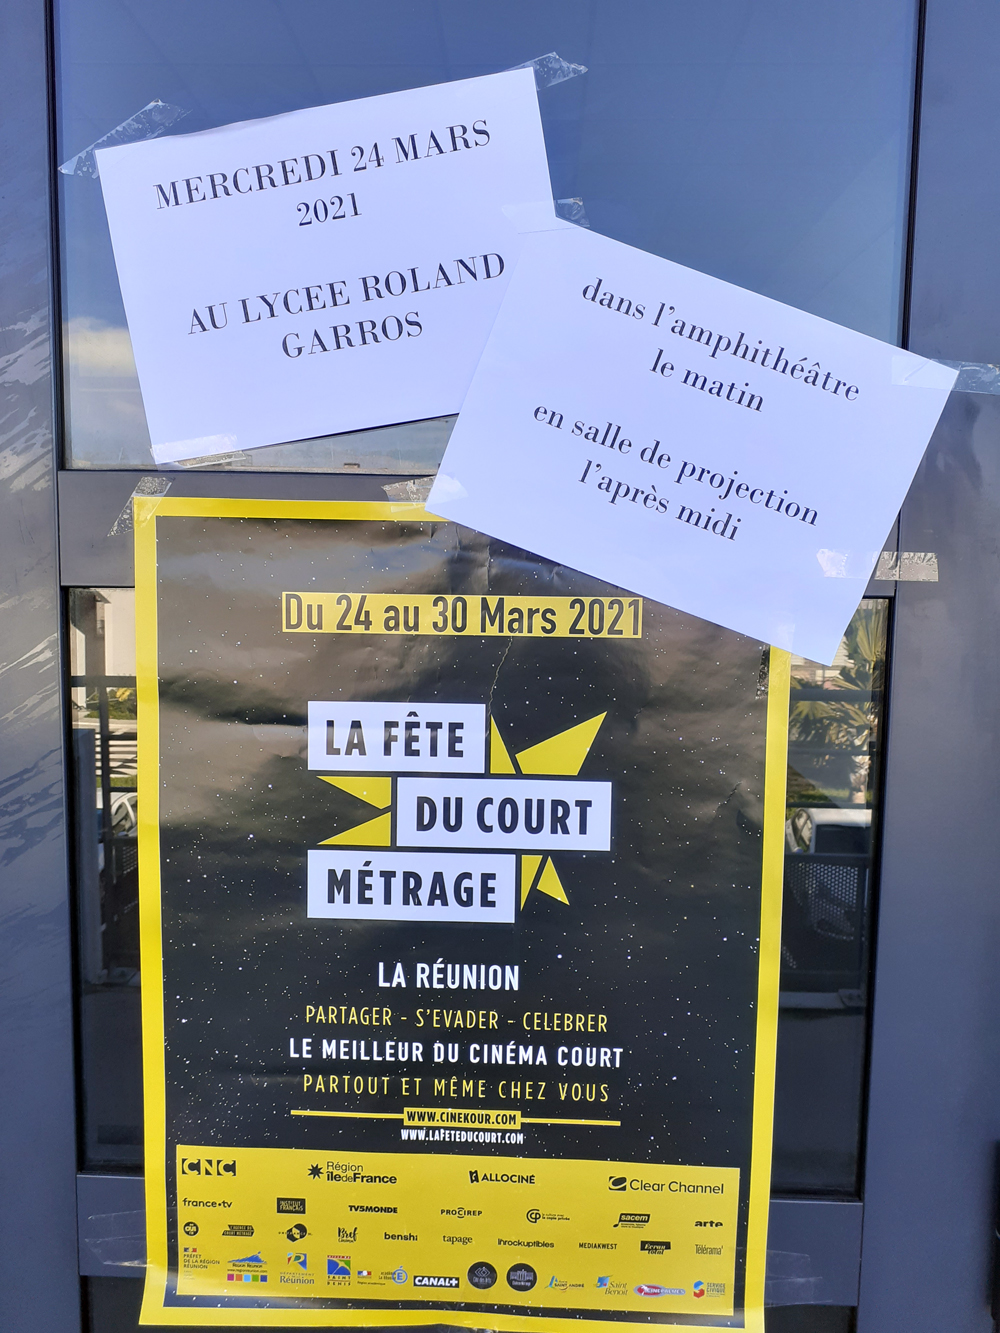 MERCREDI 24 MARS
2021
AU LYCEE ROLAND
GARROS
dans l'amphithéâtre
le matin
en salle de projection
l'après midi
Du 24 au 30 Mars 2021
LA FÊTE
DU COURT
MÉTRAGE
LA RÉUNION
PARTAGER - S'EVADER - CELEBRER
LE MEILLEUR DU CINÉMA COURT
PARTOUT ET MÊME CHEZ VOUS
WWW.CINEKOUR.COM
WWW.LAFETEDUCOURT.COM
CNC
Région
îledeFrance
ALLOCINÉ
Clear Channel
france•tv
INSTITUT
FRANÇAIS
TV5MONDE
PROCIREP
sacem
arte
Bref
Cinéma
benshi
tapage
inrockuptibles
MEDIAKWEST
Écran
Total
Télérama'
PRÉFET
DE LA RÉGION
RÉUNION
Réunion
CANAL+
Saint
Benoit